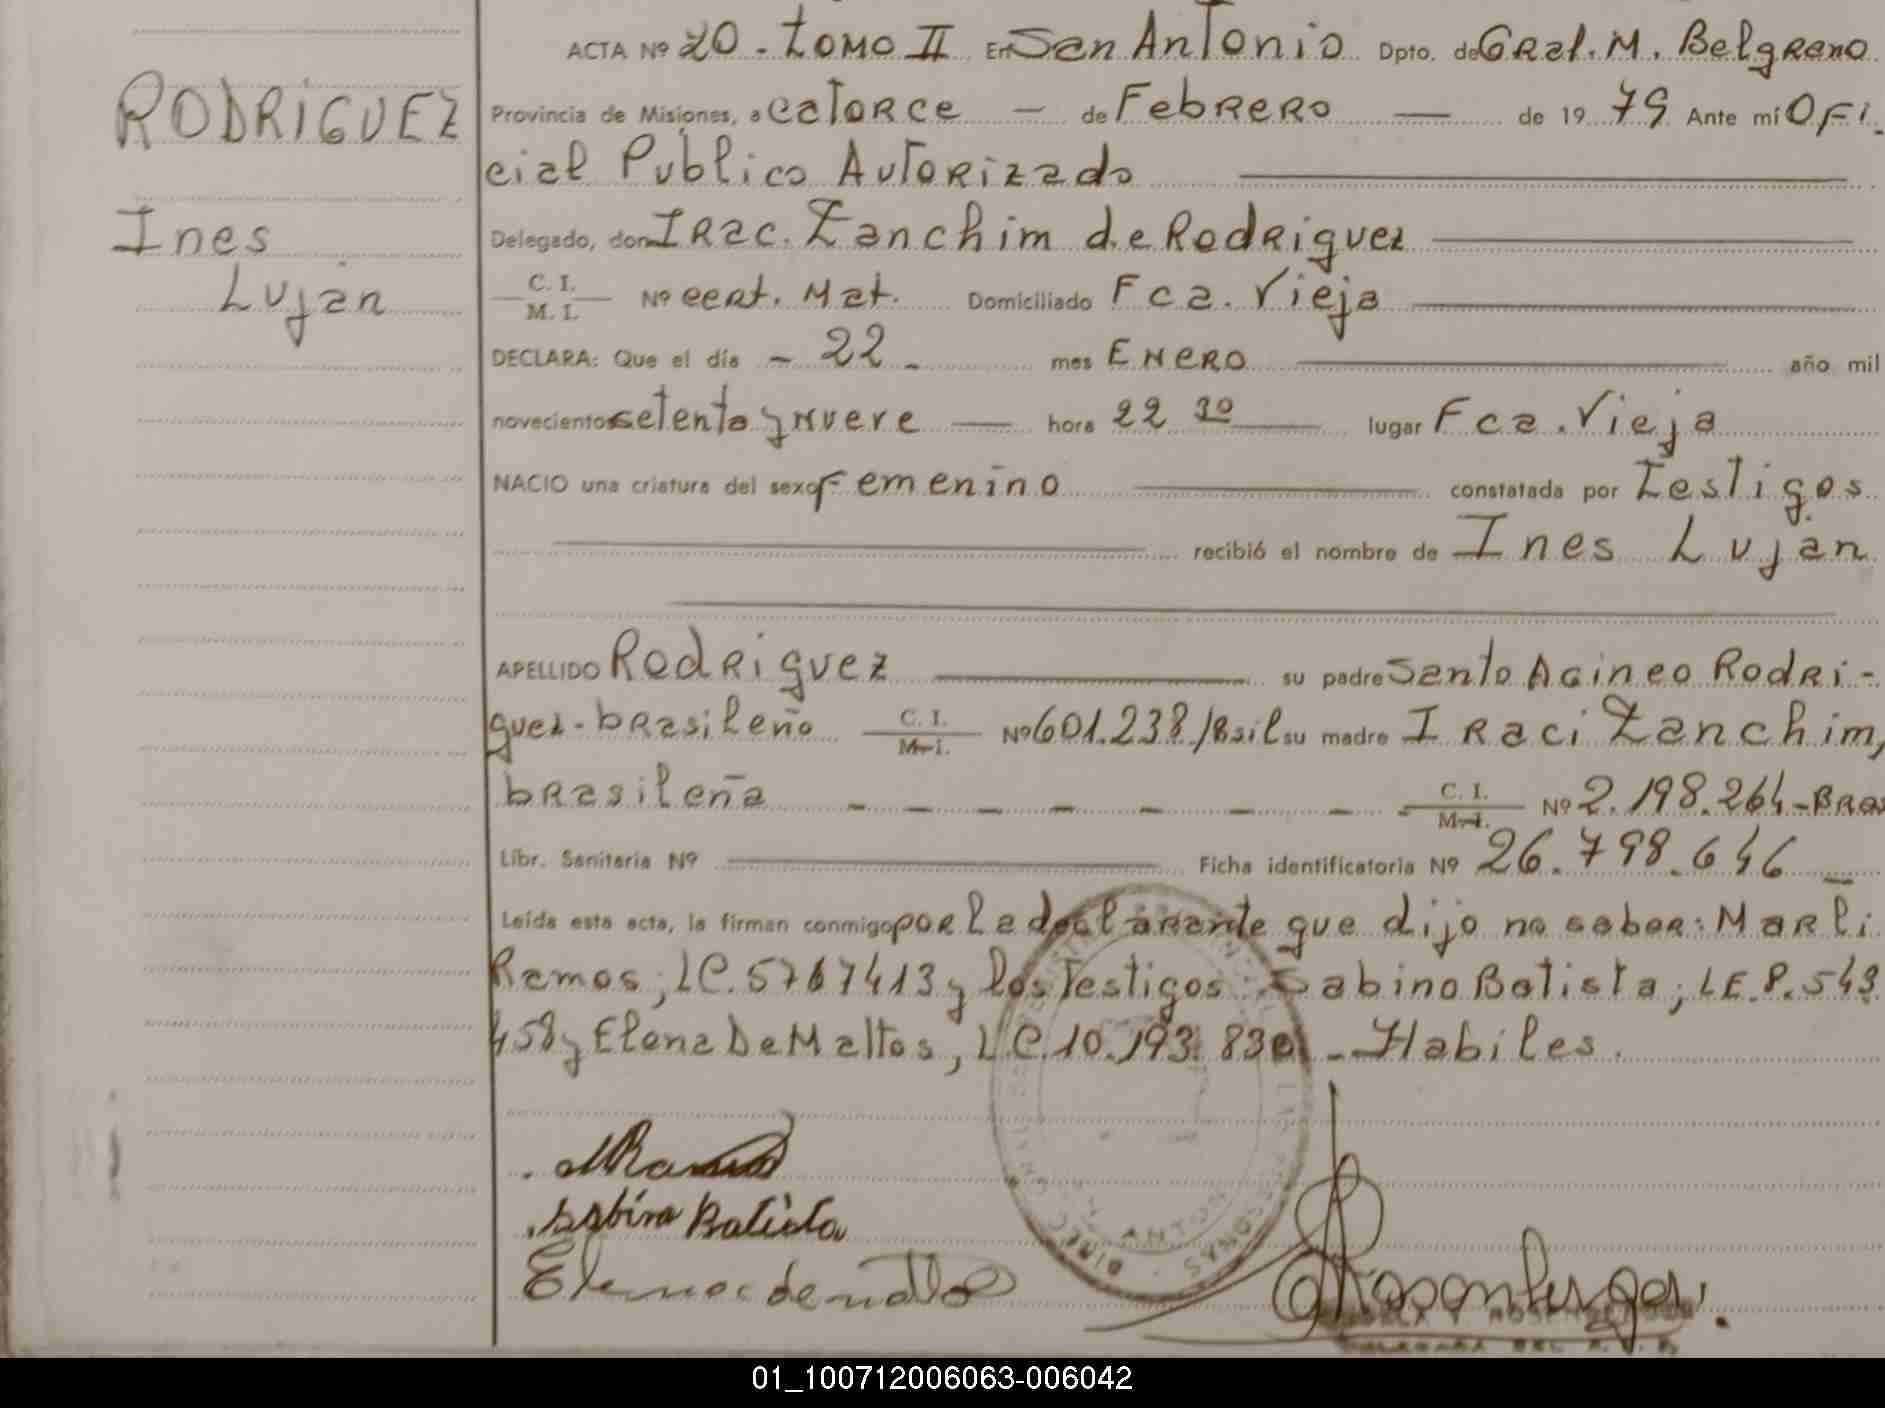 RODRIGUEZ
Ines
Lujan
ACTA Nº 20 - Tomo II En San Antonio Dpto. de Gral. M. Belgrano
Provincia de Misiones, a catorce — de Febrero — de 19 79 Ante mí Ofi-
cial Publico Autorizado
Delegado, don Irac. Zanchim de Rodriguez
C. I.
M. I. Nº cert. Mat. Domiciliado Fca. Vieja
DECLARA: Que el día - 22 - mes Enero año mil
novecientos setenta y nueve — hora 22 30 lugar Fca. Vieja
NACIO una criatura del sexo Femenino constatada por Testigos
recibió el nombre de Ines Lujan
APELLIDO Rodriguez su padre Santo Acineo Rodri-
guez - brasileño C. I. M. I. Nº 601.238/Bsil su madre Iraci Zanchim,
brasileña - - - - - - - C. I. M. I. Nº 2.198.264 - Bras
Libr. Sanitaria Nº Ficha identificatoria Nº 26.798.646
Leída esta acta, la firman conmigo por la declarante que dijo no saber: Marli
Ramos, LC. 5767413 y los Testigos Sabino Batista, LE. 8.543
458 y Elena De Mattos, L.C. 10.193.830 - Habiles.
Sabino Batista
Elena de mattos
01_100712006063-006042